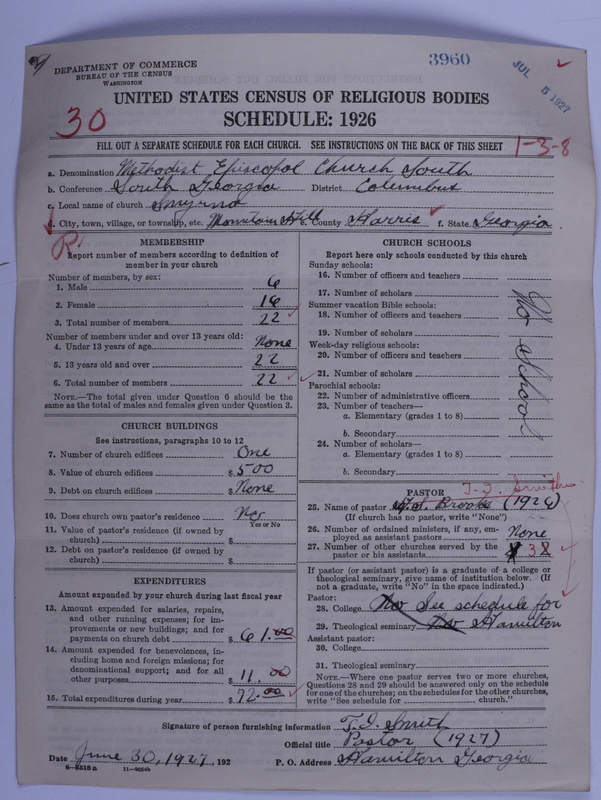 3960
JUL 5 1927
DEPARTMENT OF COMMERCE
BUREAU OF THE CENSUS
WASHINGTON
UNITED STATES CENSUS OF RELIGIOUS BODIES
SCHEDULE: 1926
30
FILL OUT A SEPARATE SCHEDULE FOR EACH CHURCH. SEE INSTRUCTIONS ON THE BACK OF THIS SHEET
1-3-8
a. Denomination Methodist Episcopal Church South
b. Conference South Georgia District Columbus
c. Local name of church Smyrna
d. City, town, village, or township, etc. Mountain Hill e. County Harris f. State Georgia
R
MEMBERSHIP
Report number of members according to definition of
member in your church
Number of members, by sex:
1. Male 6
2. Female 16
3. Total number of members 22
Number of members under and over 13 years old:
4. Under 13 years of age None
5. 13 years old and over 22
6. Total number of members 22
NOTE.—The total given under Question 6 should be the
same as the total of males and females given under Question 3.
CHURCH BUILDINGS
See instructions, paragraphs 10 to 12
7. Number of church edifices One
8. Value of church edifices $500
9. Debt on church edifices $None
10. Does church own pastor's residence No
Yes or No
11. Value of pastor's residence (if owned by
church) $
12. Debt on pastor's residence (if owned by
church) $
EXPENDITURES
Amount expended by your church during last fiscal year
13. Amount expended for salaries, repairs,
and other running expenses; for im-
provements or new buildings; and for
payments on church debt $61.00
14. Amount expended for benevolences, in-
cluding home and foreign missions; for
denominational support; and for all
other purposes $11.00
15. Total expenditures during year $72.00
CHURCH SCHOOLS
Report here only schools conducted by this church
Sunday schools:
16. Number of officers and teachers
17. Number of scholars
Summer vacation Bible schools:
18. Number of officers and teachers
19. Number of scholars
Week-day religious schools:
20. Number of officers and teachers
21. Number of scholars
Parochial schools:
22. Number of administrative officers
23. Number of teachers—
a. Elementary (grades 1 to 8)
b. Secondary
24. Number of scholars—
a. Elementary (grades 1 to 8)
b. Secondary
No School
PASTOR
T. I. Smith
25. Name of pastor Brooke (1926)
(If church has no pastor, write "None")
26. Number of ordained ministers, if any, em-
ployed as assistant pastors None
27. Number of other churches served by the
pastor or his assistants 3
If pastor (or assistant pastor) is a graduate of a college or
theological seminary, give name of institution below. (If
not a graduate, write "No" in the space indicated.)
Pastor:
28. College No See schedule for
29. Theological seminary No Hamilton
Assistant pastor:
30. College
31. Theological seminary
NOTE.—Where one pastor serves two or more churches,
Questions 28 and 29 should be answered only on the schedule
for one of the churches; on the schedules for the other churches,
write "See schedule for church."
Signature of person furnishing information T. I. Smith
Official title Pastor (1927)
Date June 30, 1927, 192
P. O. Address Hamilton Georgia
8-5518a